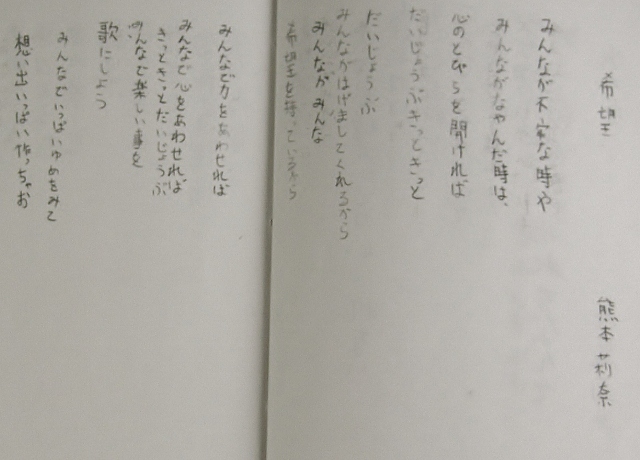 希望
熊本莉奈
みんなが不安な時や
みんながなやんだ時は、
心のとびらを開ければ
だいじょうぶきっときっと
だいじょうぶ
みんながはげましてくれるから
みんながみんな
希望を持っているから
みんなで力をあわせれば
みんなで心をあわせれば
きっときっとだいじょうぶ
みんなで楽しい事を
歌にしよう
みんなでいっぱいゆめをみて
想い出いっぱい作っちゃお